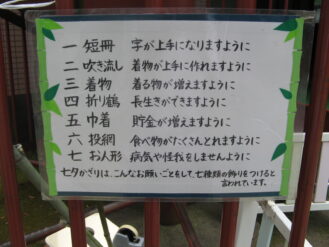 一 短冊 字が上手になりますように
二 吹き流し 着物が上手に作れますように
三 着物 着る物が増えますように
四 折り鶴 長生きができますように
五 巾着 貯金が増えますように
六 投網 食べ物がたくさんとれますように
七 お人形 病気や怪我をしませんように
七夕かざりは、こんなお願いごとをして、七種類の飾りをつけると
言われています。